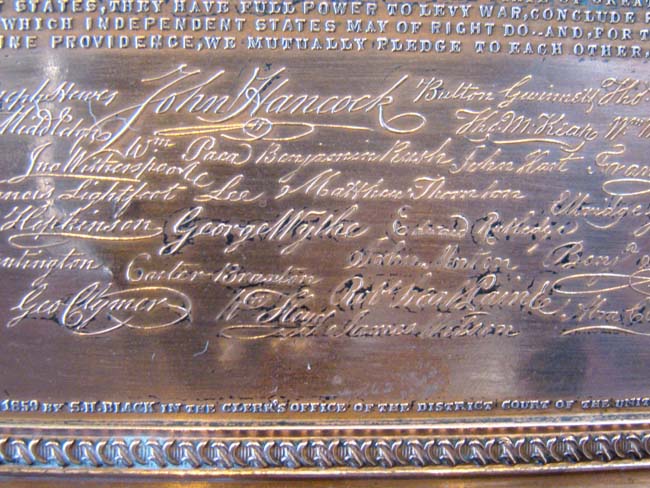 STATES, THEY HAVE FULL POWER TO LEVY WAR, CONCLUDE
WHICH INDEPENDENT STATES MAY OF RIGHT DO..AND, FOR T
NE PROVIDENCE, WE MUTUALLY PLEDGE TO EACH OTHER,
seph Hewes John Hancock Button Gwinnett Tho
Middleton Tho M.Kean Wm
Jno Witherspoon Wm Paca Benjamin Rush John Hart Fran
ncis Lightfoot Lee Matthew Thornton Elbridge
Hopkinson George Wythe Edward Rutledge
untington Carter Braxton John Morton Benj
Geo Clymer Robt Treat Paine
James Wilson
1859 BY S.H. BLACK IN THE CLERK'S OFFICE OF THE DISTRICT COURT OF THE UNIT